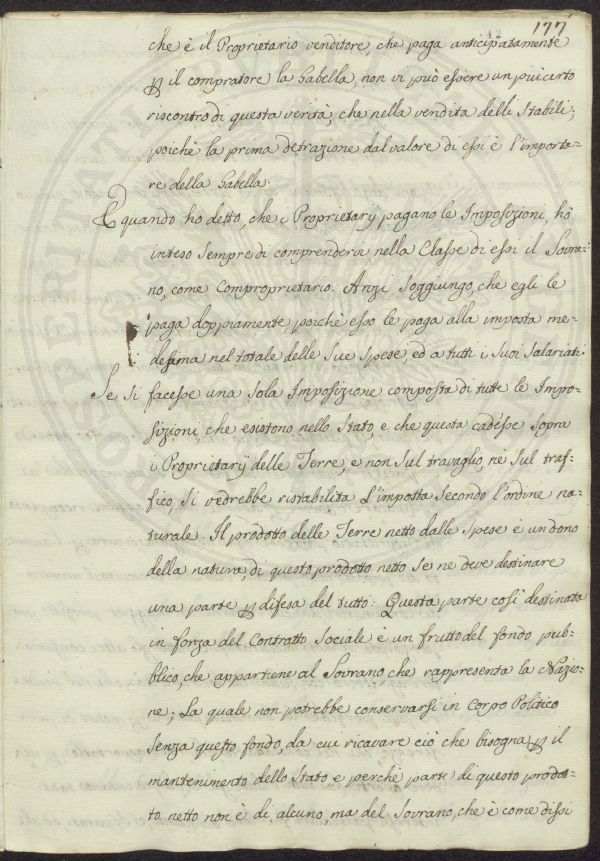 42 177
che è il Proprietario venditore, che paga anticipatamente
il compratore la Gabella, non vi può essere un più certo
riscontro di questa verità, che nella vendita delli Stabili;
poichè la prima detrazione dal valore di essi è l'importa-
re della Gabella.
E quando ho detto, che i Proprietarj pagano le Imposizioni, hò
inteso sempre di comprendervi nella Classe di essi il Sovra-
no, come Comproprietario. Anzi soggiungo, che egli le
paga doppiamente, poichè esso le paga alla imposta me-
desima nel totale delle sue spese, ed a tutti i suoi Salariati.
Se si facesse una sola Imposizione composta di tutte le Impo-
sizioni, che esistono nello Stato, e che questa cadesse sopra
i Proprietarj delle Terre, e non sul travaglio, nè sul traf-
fico, si vedrebbe ristabilita l'imposta secondo l'ordine na-
turale. Il prodotto delle Terre netto dalle spese è un dono
della natura, di questo prodotto netto se ne deve destinare
una parte difesa del tutto: Questa parte così destinata
in forza del Contratto Sociale è un frutto del fondo pub-
blico, che appartiene al Sovrano, che rappresenta la Nazio-
ne; la quale non potrebbe conservarsi in Corpo Politico
senza questo fondo, da cui ricavare ciò che bisogna il
mantenimento dello Stato e perchè parte di questo prodot-
to netto non è di alcuno, ma del Sovrano, che è come dissi